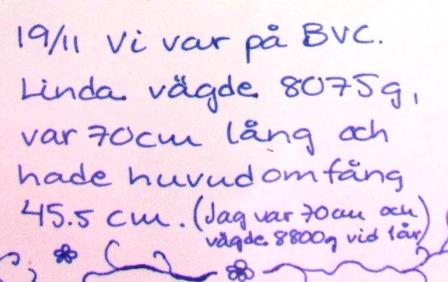 19/11 Vi var på BVC.
Linda vägde 8075g,
var 70cm lång och
hade huvudomfång
45.5 cm. (Jag var 70cm och
vägde 8800g vid 1år)